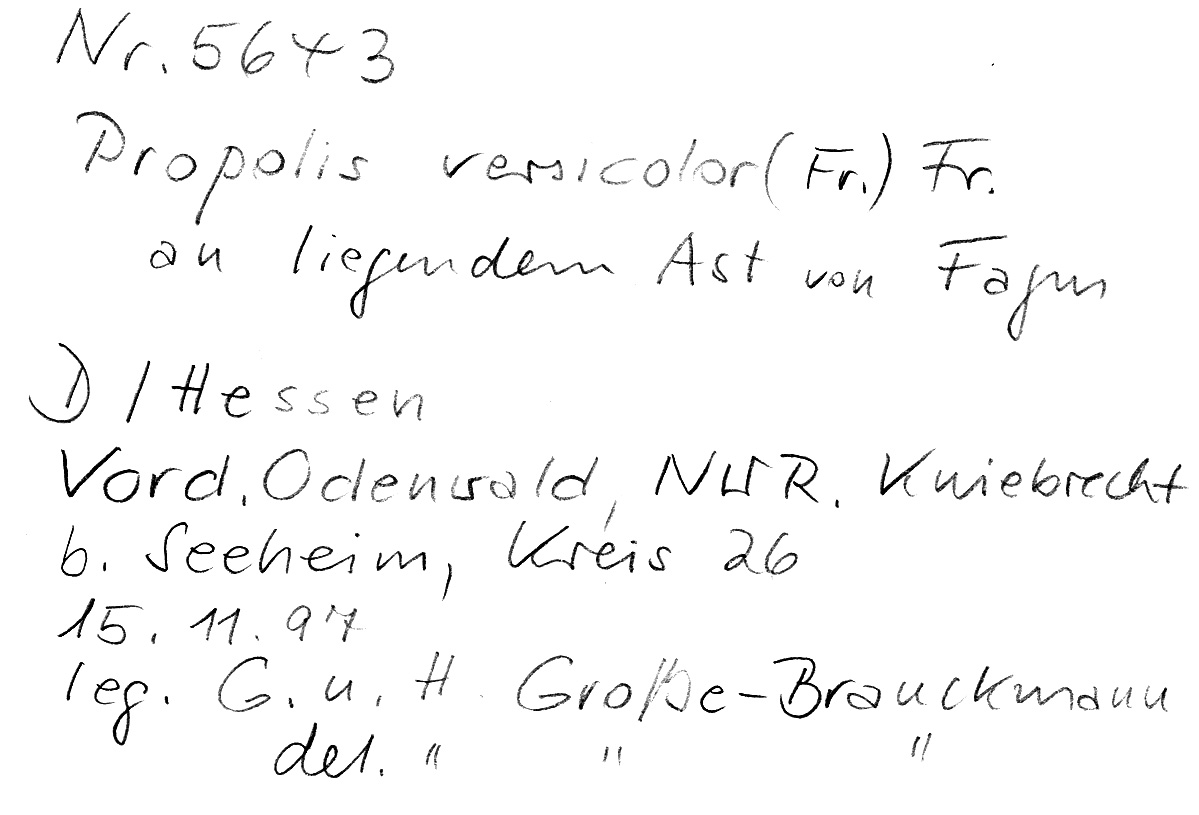 Nr. 5673
Propolis versicolor (Fr.) Fr.
an liegendem Ast von Fagus
D / Hessen
Vord. Odenwald, NWR. Kniebrecht
b. Seeheim, Kreis 26
15. 11. 97
leg. G. u. H. Große-Brauckmann
det. " " "